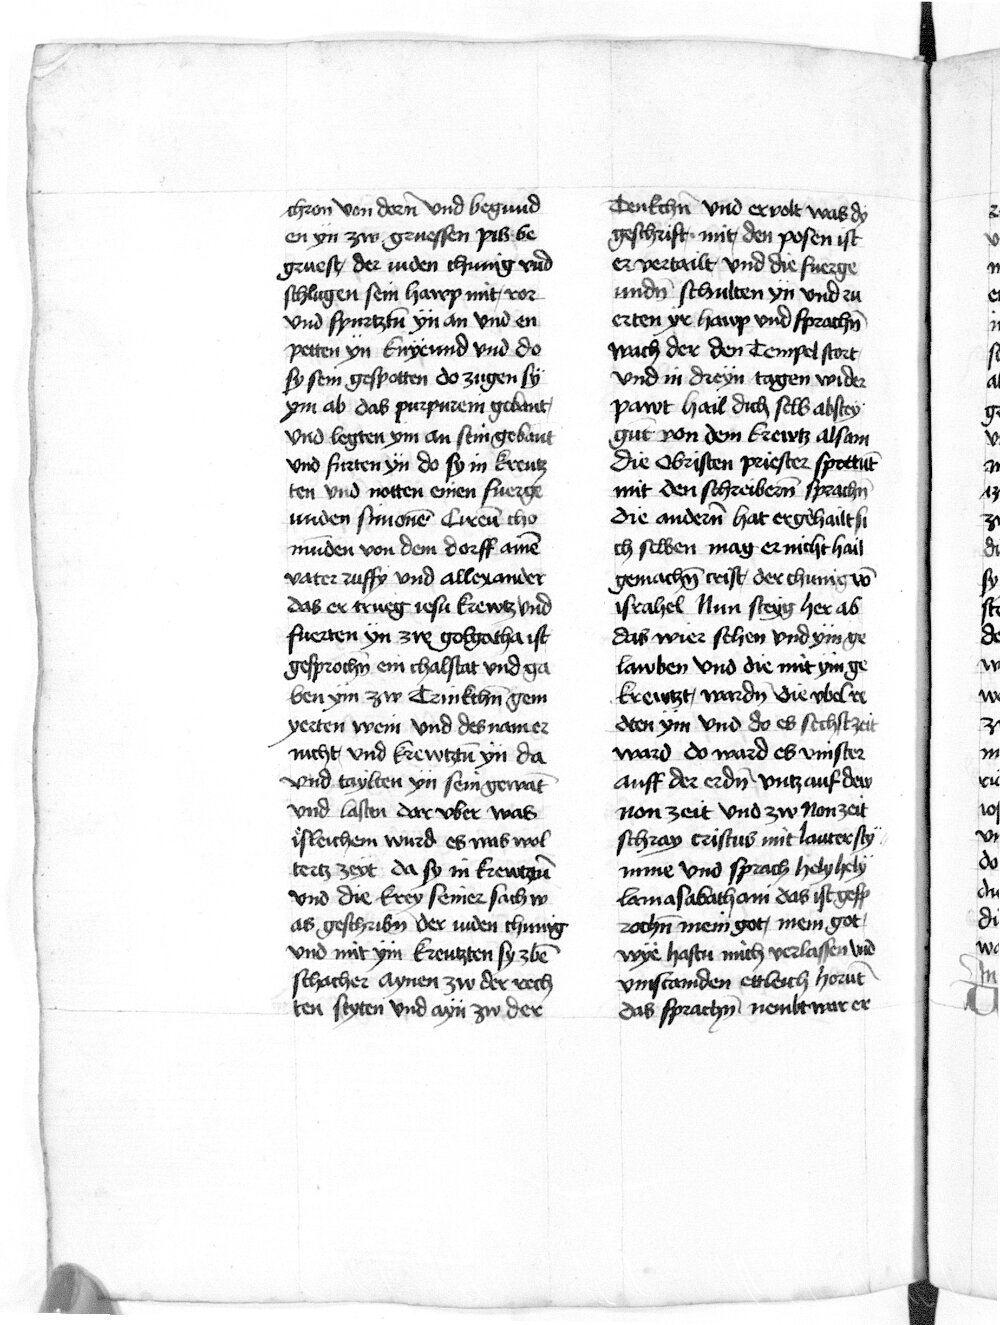 chron von dorn̄ vnd begund
en yn zw gruessen pis be
gruest der iuden chunig vnd
schlugen sein hawp mit ror
vnd spurtztn̄ yn an vnd en
petten yn knyeund vnd do
sy sein gespotten do zugen sy
ym ab das purpurein gebant
vnd legten ym an sein gebant
vnd furten yn do sy in kreutz
ten vnd notten einen fuerge
unden simonē Cireū cho
mūden von dem dorff ainē
vater ruffy vnd allexander
das er trueg iesu krewtz vnd
fuerten yn zw golgatha ist
gesprochn̄ ein chalstat vnd ga
ben ym zw Trinkchn̄ gem
yerten wein vnd des nam er
nicht vnd krewtztn̄ yn da
vnd taylten yn sein gewāt
vnd lasten dar vber was
isleichem wurd es was wol
tertz zeyt da sy in krewtztn̄
vnd die krey seiner sach w
as geschribn̄ der iuden chunig
vnd mit ym kreutzten sy zbē
schacher aynen zw der rech
ten seyten vnd ayn zw der
Tenkchn̄ vnd ervolt was dy
geschrift mit den posen ist
er vertailt vnd die fuerge
undn̄ schulten yn vnd ru
erten yr hawp vnd sprachn̄
wach der den Tempel stort
vnd in dreyn tagen wider
pawt hail dich selb abstey
gūt von dem krewtz alsam
die Obristen priester spottūt
mit den schreibern̄ sprachn̄
die andern̄ hat er gehailt si
ch selben mag er nicht hail
gemachn̄ crist der chunig vō
israhel Nun steyg her ab
das wier sehen vnd ym ge
lawben vnd die mit ym ge
krewtzt wardn̄ die vbel re
dten ym vnd do es sechst zeit
ward do ward es vinster
auff der erdn̄ vntz auf dew
non zeit vnd zw Non zeit
schray cristus mit lauter sty
mme vnd sprach hely hely
lama sabathani das ist gesp
rochn̄ mein got mein got
wye hastu mich verlassen vnd
vmstanden ettleich horūt
das sprachn̄ nembt war er